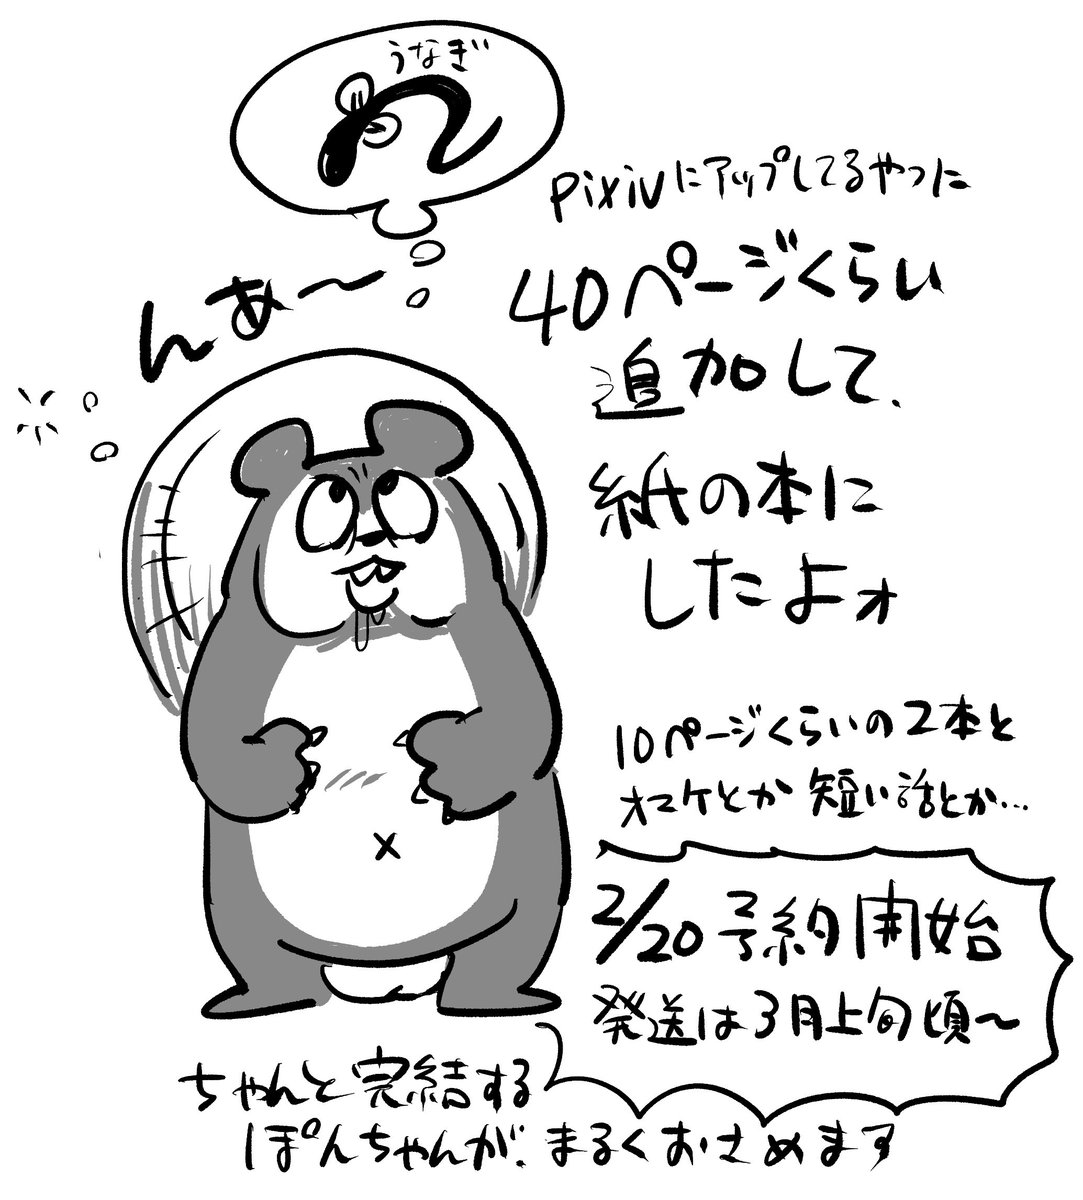 うなぎ
んあ〜
pixivにアップしてるやつに
40ページくらい
追加して、
紙の本に
したよォ
10ページくらいの2本と
オマケとか短い話とか…
2/20予約開始
発送は3月上旬頃〜
ちゃんと完結する
ぽんちゃんが、まるくおさめます